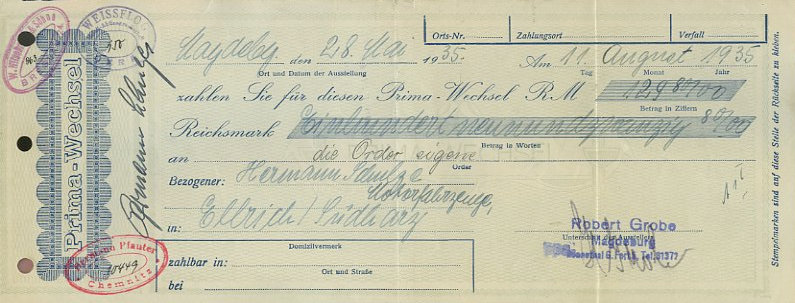 WEISSFLOG
Orts-Nr.
Zahlungsort
Verfall
Magdebg, den 28. Mai 1935.
Am 11. August 1935
Ort und Datum der Ausstellung
Tag
Monat
Jahr
zahlen Sie für diesen Prima-Wechsel RM 129 80/00
Betrag in Ziffern
Reichsmark Einhundertneunundzwanzig 80/00
Betrag in Worten
an die Order eigene
Order
Bezogener: Hermann Schulze
Motorfahrzeuge,
in: Ellrich / Südharz
Prima-Wechsel
Hermann Schulze
Hermann Pfauter
10449
Chemnitz
Domizilvermerk
zahlbar in:
Ort und Straße
bei
Robert Grobe
Unterschrift des Ausstellers
Magdeburg
Tel. 41372
Stempelmarken sind auf diese Stelle der Rückseite zu kleben.